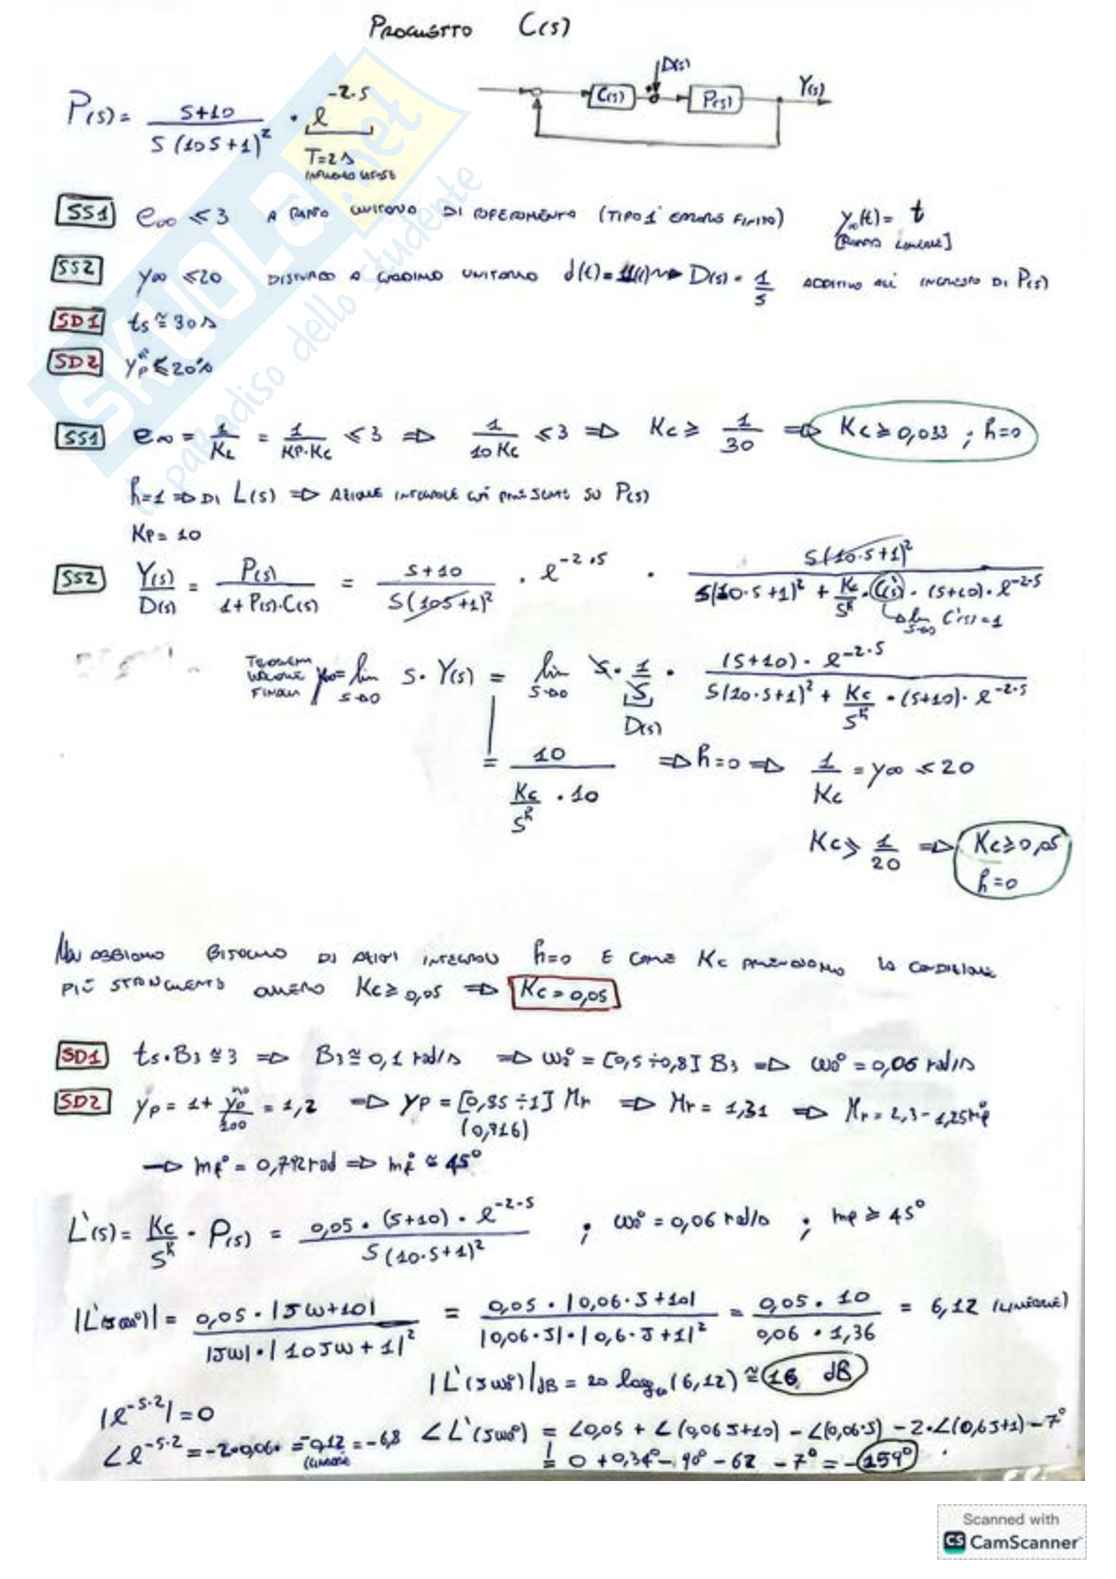 PROGETTO C(s)
P(s) = (s+10) / (s(10s+1)²) · e^(-2·s)
T=2s
D(s)
C(s) P(s) Y(s)
SS1 e∞ ≤ 3 A RAMPA UNITARIA DI RIFERIMENTO (TIPO 1 ERRORE FINITO) y∞(t) = t
[RAMPA LINEARE]
SS2 y∞ ≤ 20 DISTURBO A GRADINO UNITARIO d(t) = 1(t) D(s) = 1/s ADDITIVO ALL' INGRESSO DI P(s)
SD1 ts ≅ 30s
SD2 yp% ≤ 20%
SS1 e∞ = 1/KL = 1/(KP·Kc) ≤ 3 ⇒ 1/(10 Kc) ≤ 3 ⇒ Kc ≥ 1/30 ⇒ Kc ≥ 0,033 ; h=0
h=1 ⇒ DI L(s) ⇒ AZIONE INTEGRALE GIÀ PRESENTE SU P(s)
KP = 10
SS2 Y(s)/D(s) = P(s) / (1+P(s)·C(s)) = (s+10) / (s(10s+1)²) · e^(-2·s) · s(10·s+1)² / (s(10·s+1)² + Kc/s^h · C'(s) · (s+10)·e^(-2·s))
lim s→0 C'(s) = 1
TEOREMA VALORE FINALE y∞ = lim s→0 s·Y(s) = lim s→0 s · 1/s · (s+10)·e^(-2·s) / (s(10·s+1)² + Kc/s^h · (s+10)·e^(-2·s))
D(s)
= 10 / (Kc/s^h · 10) ⇒ h=0 ⇒ 1/Kc = y∞ ≤ 20
Kc ≥ 1/20 ⇒ Kc ≥ 0,05
h=0
NON ABBIAMO BISOGNO DI AZIONI INTEGRALI h=0 E COME Kc PRENDIAMO LA CONDIZIONE
PIÙ STRINGENTE OVVERO Kc ≥ 0,05 ⇒ Kc = 0,05
SD1 ts·B3 ≅ 3 ⇒ B3 ≅ 0,1 rad/s ⇒ ω0° = [0,5 ÷ 0,8] B3 ⇒ ω0° = 0,06 rad/s
SD2 yp = 1 + yp%/100 = 1,2 ⇒ yp = [0,85 ÷ 1] Mr ⇒ Mr = 1,31 ⇒ Mr = 2,3 - 1,25 mφ°
(0,916)
→ mφ° = 0,792 rad ⇒ mφ° ≅ 45°
L'(s) = Kc/s^h · P(s) = 0,05 · (s+10) · e^(-2·s) / (s(10·s+1)²) ; ω0° = 0,06 rad/s ; mφ ≥ 45°
|L'(jω0°)| = 0,05 · |jω+10| / (|jω| · |10jω+1|²) = 0,05 · |0,06·j+10| / (|0,06·j| · |0,6·j+1|²) = 0,05 · 10 / (0,06 · 1,36) = 6,12 (LINEARE)
|L'(jω0°)|dB = 20 log10(6,12) ≅ 16 dB
|e^(-s·2)| = 0
∠e^(-s·2) = -2·0,06 = -0,12 = -6,8 ∠L'(jω0°) = ∠0,05 + ∠(0,06j+10) - ∠(0,06·j) - 2·∠(0,6j+1) - 7°
= 0 + 0,34° - 90° - 62 - 7° = -159°
Scanned with
CS CamScanner
SKUOLA.net
il paradiso dello studente